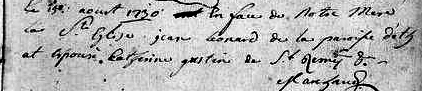 aoust 1730 en face de Notre Mere
la Ste Eglise jean leonard de la paroisse
at epousé Catherine gustin de St Remy